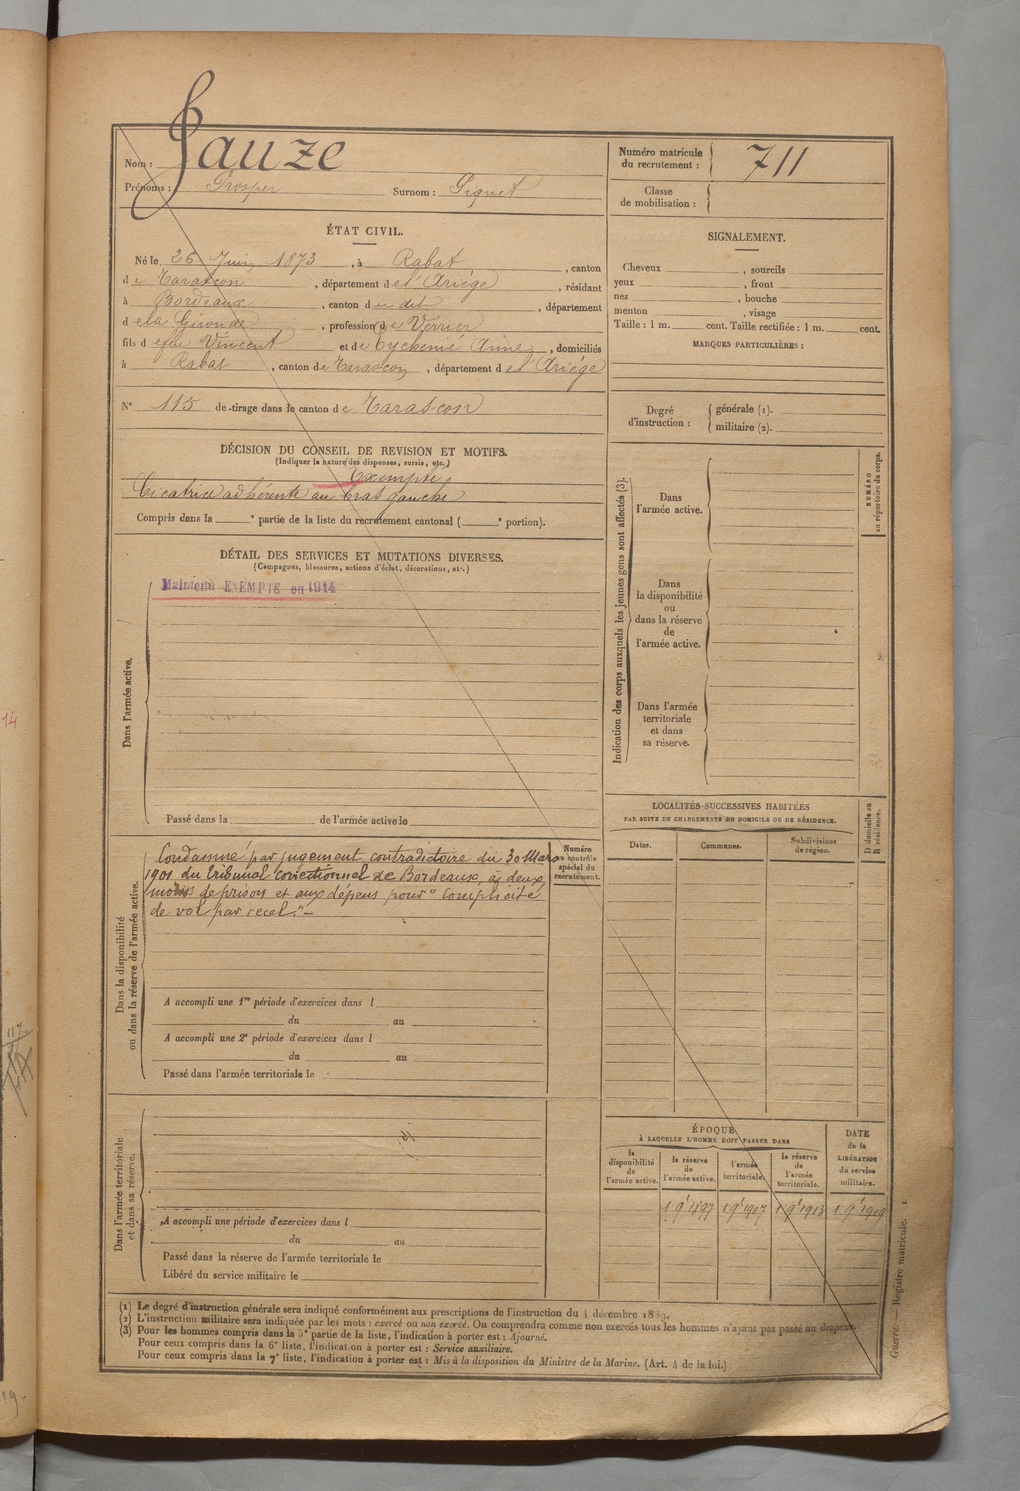 Nom : Gauze
Prénoms : Prosper Surnom : Piquet
ÉTAT CIVIL.
Né le 26 Juin 1873, à Rabat, canton
de Tarascon, département de l'Ariége, résidant
à Bordeaux, canton du dit, département
de la Gironde, profession de Verrier
fils de feu Vincent et de Eychenié Anne, domiciliés
à Rabat, canton de Tarascon, département de l'Ariége
N° 115 de tirage dans le canton de Tarascon
DÉCISION DU CONSEIL DE REVISION ET MOTIFS.
(Indiquer la nature des dispenses, sursis, etc.)
Exempté
Cicatrice adhérente au bras gauche
Compris dans la e partie de la liste du recrutement cantonal ( e portion).
DÉTAIL DES SERVICES ET MUTATIONS DIVERSES.
(Campagnes, blessures, actions d'éclat, décorations, etc.)
Maintenu EXEMPTÉ en 1914
Dans l'armée active.
Passé dans la de l'armée active le
Dans la disponibilité
ou dans la réserve de l'armée active.
Condamné par jugement contradictoire du 30 Mars
1901 du tribunal correctionnel de Bordeaux, à deux
mois de prison et aux dépens pour "complicité
de vol par recel."
Numéro
au contrôle
spécial du
recrutement.
A accompli une 1re période d'exercices dans l
du au
A accompli une 2e période d'exercices dans l
du au
Passé dans l'armée territoriale le
Dans l'armée territoriale
et dans sa réserve.
A accompli une période d'exercices dans l
du au
Passé dans la réserve de l'armée territoriale le
Libéré du service militaire le
Numéro matricule
du recrutement : 711
Classe
de mobilisation :
SIGNALEMENT.
Cheveux, sourcils
yeux, front
nez, bouche
menton, visage
Taille : 1 m. cent. Taille rectifiée : 1 m. cent.
MARQUES PARTICULIÈRES :
Degré
d'instruction :
générale (1).
militaire (2).
Indication des corps auxquels les jeunes gens sont affectés (3).
NUMÉRO
au répertoire du corps.
Dans
l'armée active.
Dans
la disponibilité
ou
dans la réserve
de
l'armée active.
Dans l'armée
territoriale
et dans
sa réserve.
LOCALITÉS SUCCESSIVES HABITÉES
PAR SUITE DE CHANGEMENTS DE DOMICILE OU DE RÉSIDENCE.
Dates. Communes. Subdivisions
de région.
D domicile ou
R résidence.
ÉPOQUE
À LAQUELLE L'HOMME DOIT PASSER DANS
DATE
de la
LIBÉRATION
du service
militaire.
la
disponibilité
de
l'armée active.
la réserve
de
l'armée active.
l'armée
territoriale.
la réserve
de
l'armée
territoriale.
1 9e 1897 1 9e 1907 1 9e 1913 1 9e 1919
(1) Le degré d'instruction générale sera indiqué conformément aux prescriptions de l'instruction du 4 décembre 1889.
(2) L'instruction militaire sera indiquée par les mots : exercé ou non exercé. On comprendra comme non exercés tous les hommes n'ayant pas passé au drapeau.
(3) Pour les hommes compris dans la 5e partie de la liste, l'indication à porter est : Ajourné.
Pour ceux compris dans la 6e liste, l'indication à porter est : Service auxiliaire.
Pour ceux compris dans la 7e liste, l'indication à porter est : Mis à la disposition du Ministre de la Marine. (Art. 4 de la loi.)
Guerre. — Registre matricule.
14
117